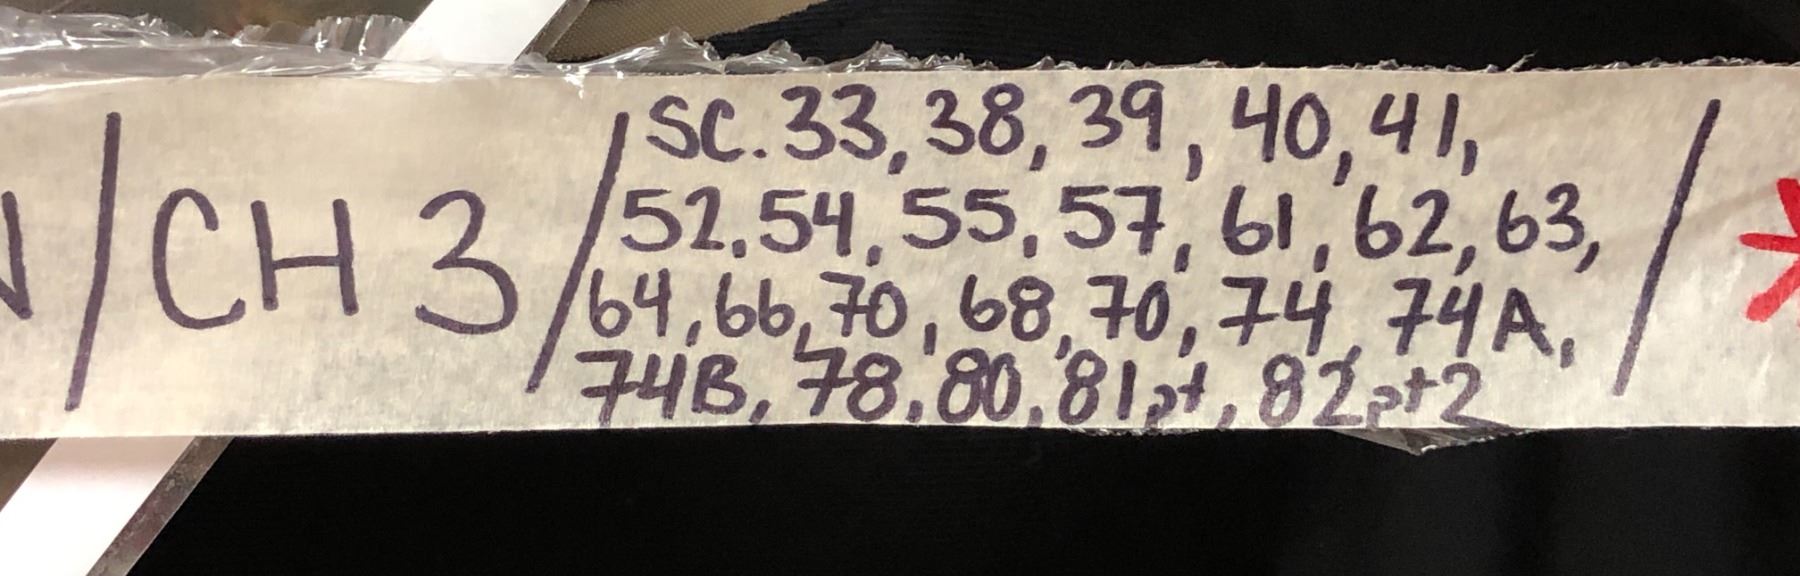 /CH 3/
SC. 33, 38, 39, 40, 41,
52, 54, 55, 57, 61, 62, 63,
64, 66, 70, 68, 70, 74, 74A,
74B, 78, 80, 81pt, 82pt2
/ *